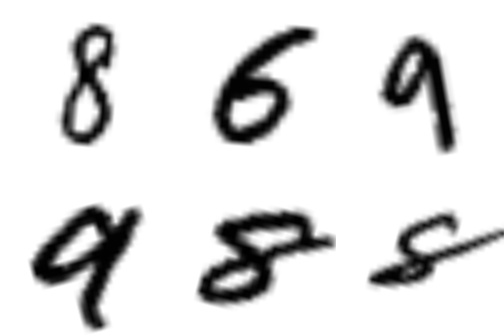 8 6 9
9 8 8